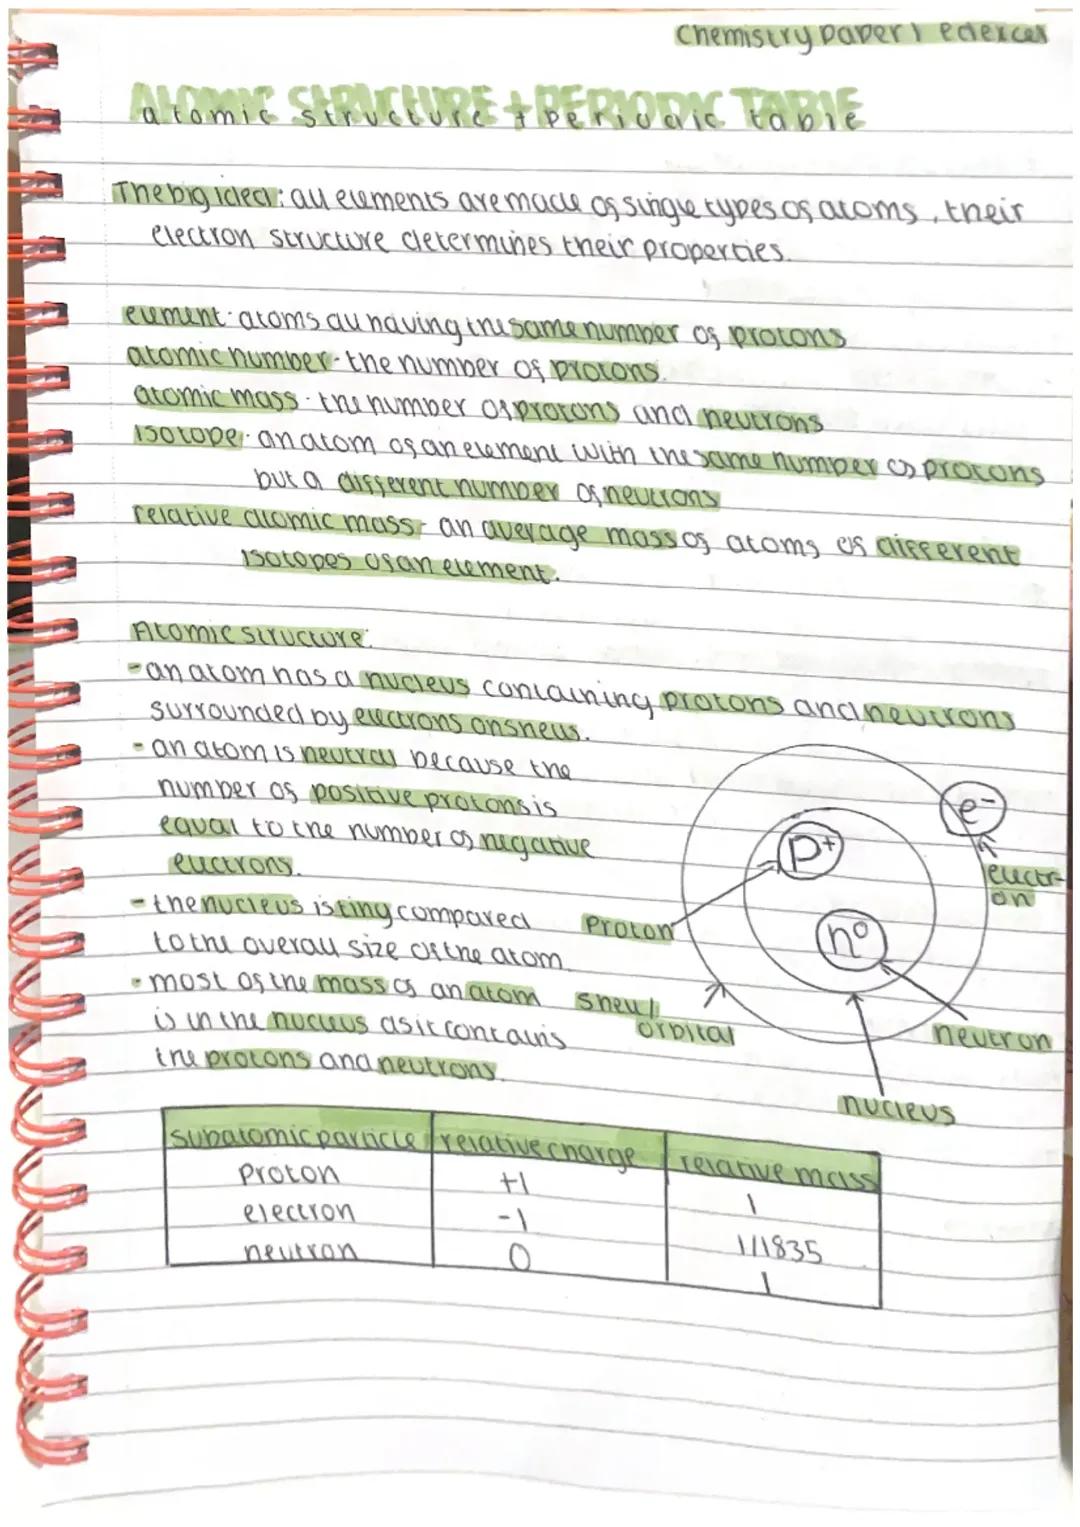 Chemistry paper 1 edexcel
ATOMIC STRUCTURE + PERIODIC TABLE
atomic structure + periodic table
The big idea: all elements are made of single types of atoms, their
electron structure determines their properties.
element - atoms all having the same number of protons
atomic number - the number of protons.
atomic mass - the number of protons and neutrons
isotope - an atom of an element with the same number of protons
but a different number of neutrons
relative atomic mass - an average mass of atoms of different
isotopes of an element.
Atomic structure:
- an atom has a nucleus containing protons and neutrons
surrounded by electrons on shells.
- an atom is neutral because the
number of positive protons is
equal to the number of negative
electrons.
- the nucleus is tiny compared
to the overall size of the atom.
- most of the mass of an atom
is in the nucleus as it contains
the protons and neutrons.
e-
p+
n0
electr-
on
proton
shell/
orbital
neutron
nucleus
subatomic particle relative charge relative mass
proton +1 1
electron -1 1/1835
neutron 0 1